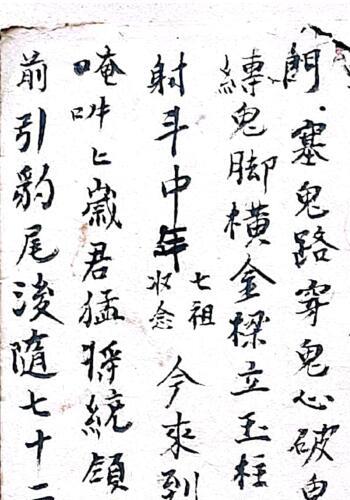 門.塞鬼路穿鬼心破鬼
縛鬼脚橫金樑立玉柱
射斗中年
七祖
收念
今來到
唵吽匕歲君猛将統領
前引豹尾浚隨七十二